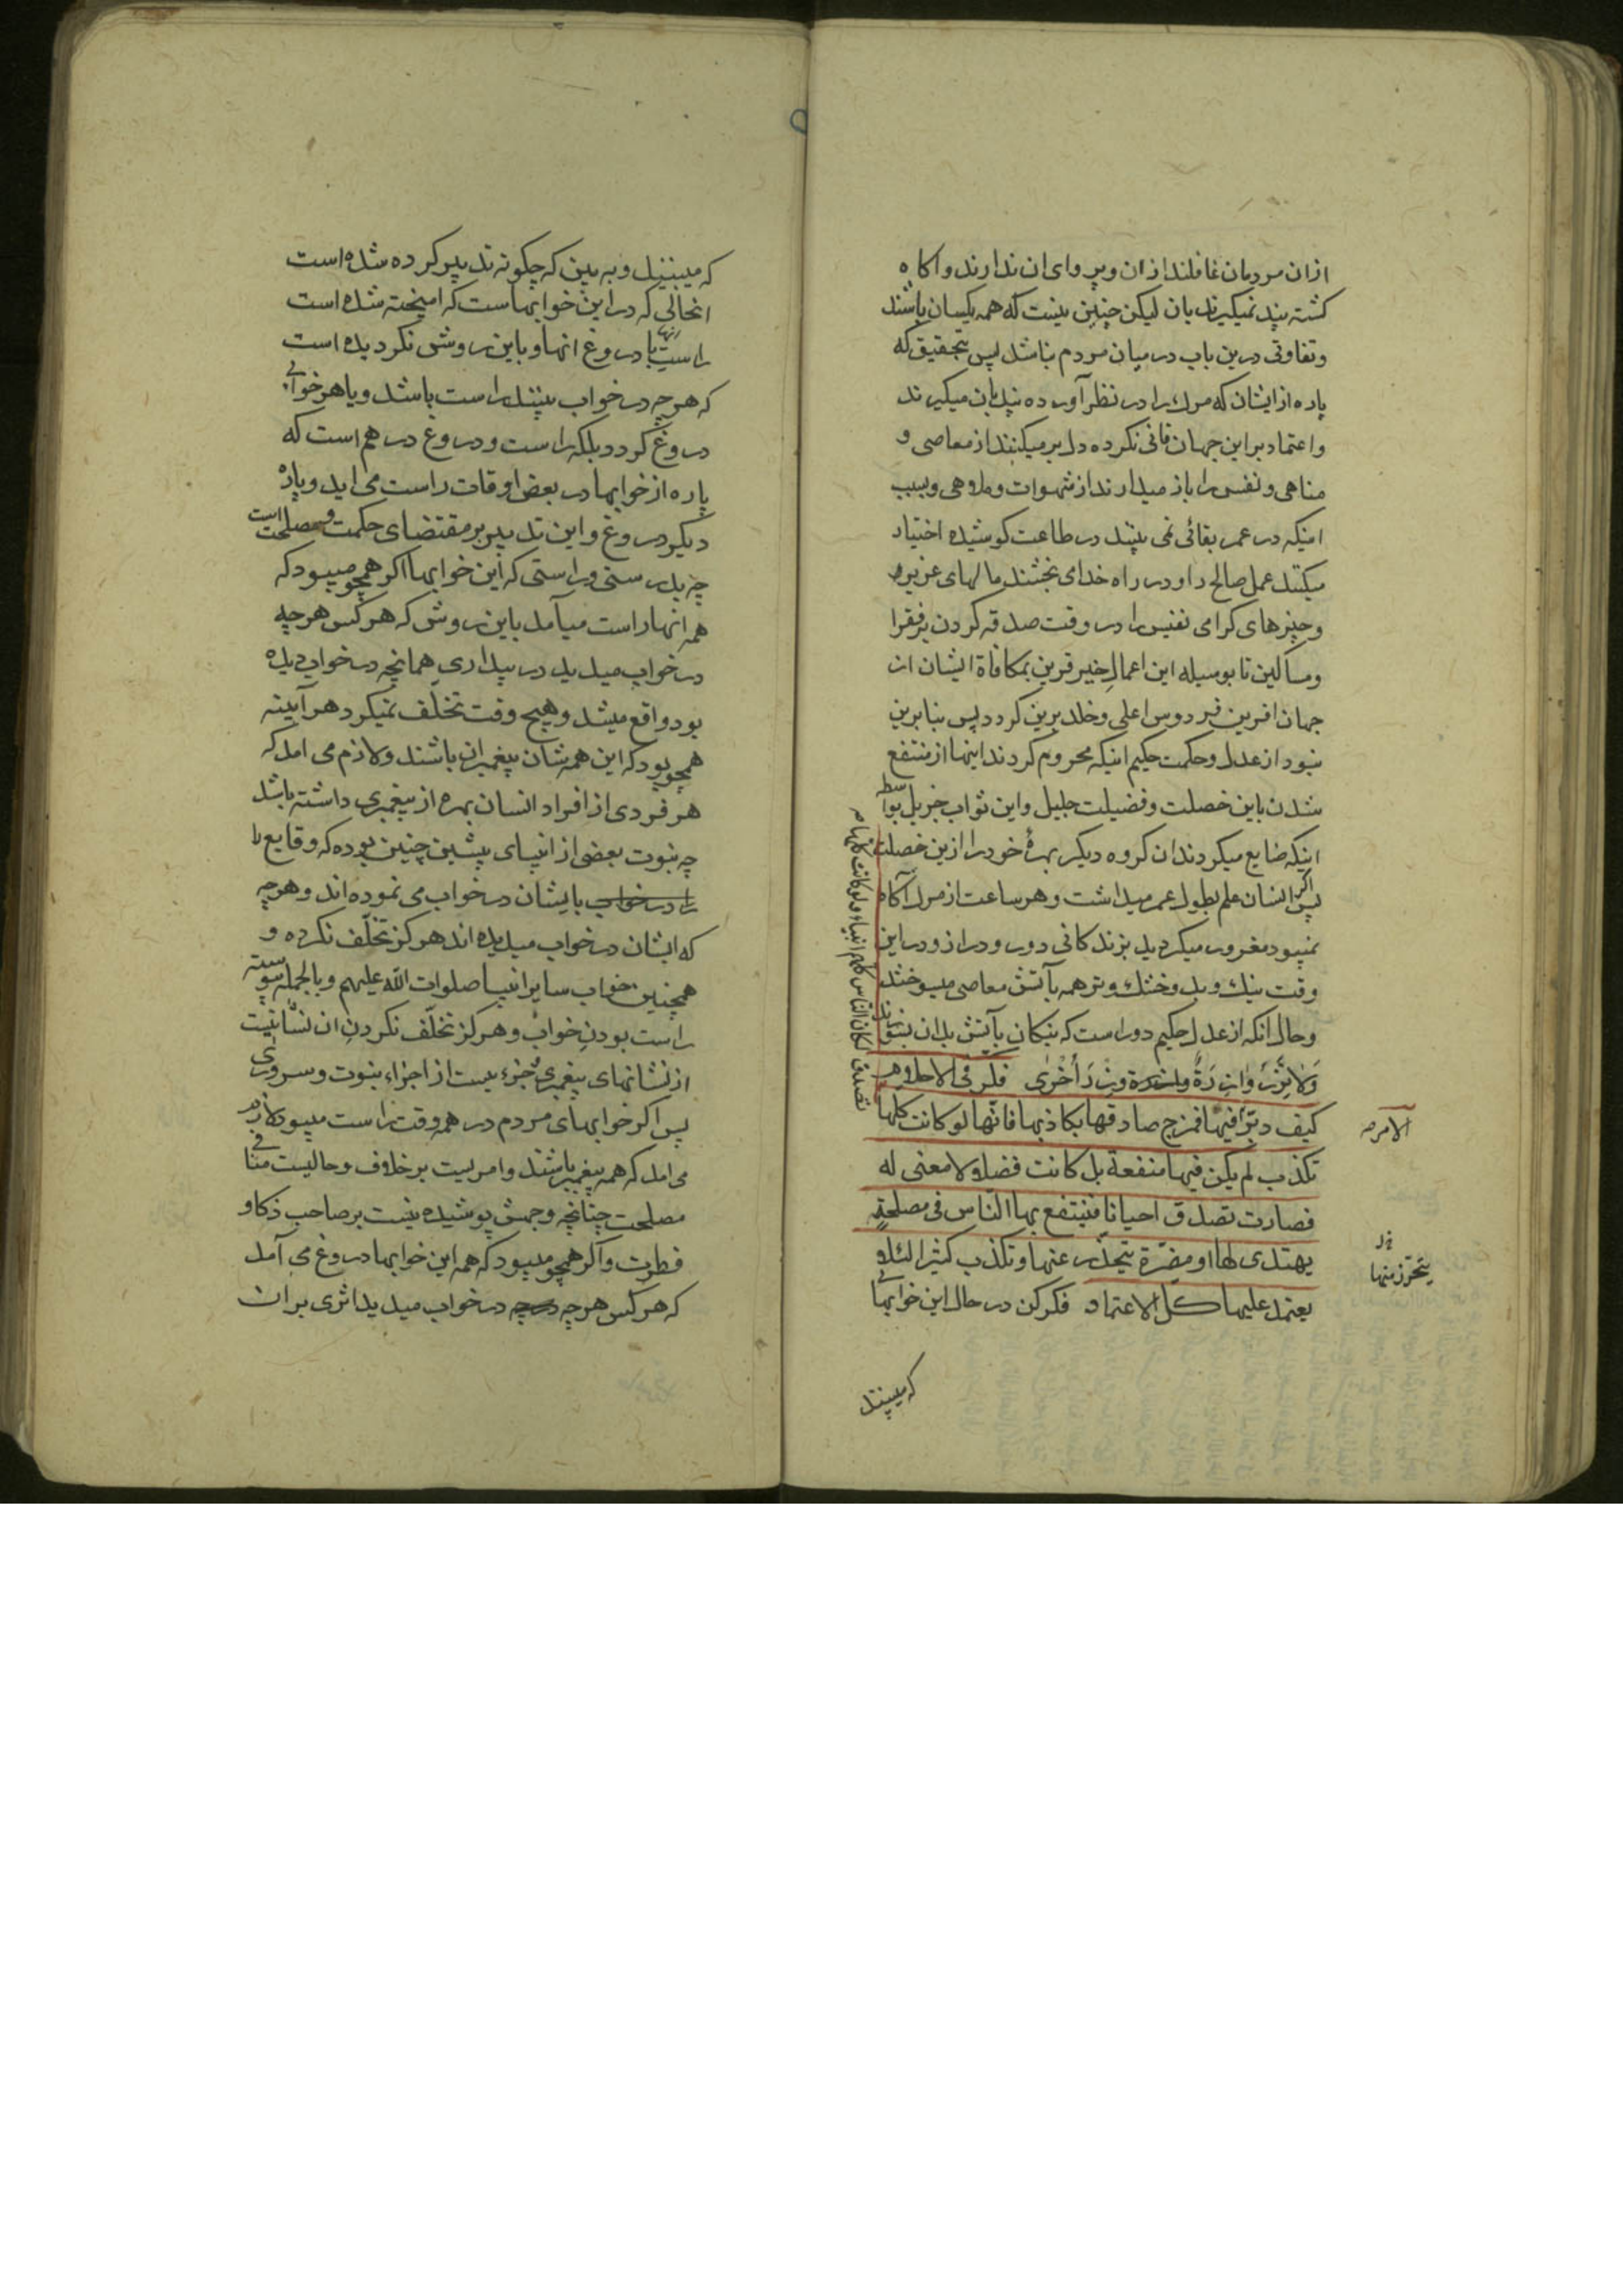 ازان مردمان غافلند ازان و پروای ان ندارند و اکاه
کشته پند نمیکیرند بان لیکن چنین نیست که همه یکسان باشند
و تفاوتی درین باب در میان مردم نباشد پس بتحقیق که
پاره از ایشان که مرک را در نظر آورده پند بان میکیرند
و اعتماد بر این جهان فانی نکرده دل بر میکنند از معاصی و
مناهی و نفس را باز میدارند از شهوات و ملاهی و بسبب
اینکه در عمر بقائی نمی بینند در طاعت کوشیده اختیار
میکنند عمل صالح را و در راه خدا می بخشند مالهای عزیز
و چیزهای کرامی نفیس را در وقت صدقه کردن بر فقرا
و مساکین تا بوسیله این اعمال خیر قرین بمکافاة ایشان از
جهان افرین فردوس اعلی و خلد برین کردد پس بنابرین
نبود از عدل و حکمت حکیم اینکه محروم کردند اینها از منتفع
شدن باین خصلت و فضیلت جلیل و این ثواب جزیل بواسطه
اینکه ضایع میکردند ان کروه دیکر بهرهٔ خود را ازین خصلت
پس اکر انسان علم بطول عمر میداشت و هر ساعت از مرک آکاه
نمیبود مغرور میکردید بزندکانی دور و دراز و در این
وقت نیک و بد و خشک و تر همه بآتش معاصی میسوختند
و حال انکه از عدل حکیم دور است که نیکان بآتش بدان بسوزند
وَلا تَزِرُ وازِرَةٌ وِزرَ أُخْرٰی فکّر فی الاحلام
کیف دبّر فیها فمزج صادقها بکاذبها فانّها لو کانت کلها
تکذب لم یکن فیها منفعة بل کانت فضلا لا معنی له
فصارت تصدق احیانا فینتفع بها النّاس فی مصلحةٍ
یهتدی لها او مضرّة یتحذّر عنها و تکذب کثیرا لئلا
یعتمد علیها کل الاعتماد فکر کن در حال این خوابها
که میبینند
تصدق لکان النّاس کلهم انبیاء ولو کانت کلها
الامر
یتحرّز منها
که میبینند و به بین که چکونه تدبیر کرده شده است
انحالی که در این خوابهاست که امیخته شده است
راست انها با دروغ انها و باین روش نکردیده است
که هر چه در خواب بینند راست باشد و یا هر خوابی
دروغ کردد بلکه راست و دروغ در هم است که
پاره از خوابها در بعض اوقات راست می اید و پاره
دیکر دروغ و این تدبیر بر مقتضای حکمت و مصلحت است
چه بدرستی و راستی که این خوابها اکر همچو میبود که
همه انها راست میآمد باین روش که هر کس هر چه
در خواب میدید در بیداری همانچه در خواب دیده
بود واقع میشد و هیچ وقت تخلّف نمیکرد هر آینه
همچو بود که این همه شان پیغمبران باشند و لازم می امد که
هر فردی از افراد انسان بهره از پیغمبری داشته باشد
چه نبوت بعضی از انبیای پیشین چنین بوده که وقایع را
را در خواب بایشان در خواب می نموده اند و هر چه
که ایشان در خواب میدیده اند هرکز تخلّف نکرده و
همچنین خواب سایر انبیا صلوات اللّه علیهم و بالجمله پیوسته
راست بودن خواب و هرکز تخلّف نکردن ان نشانیست
از نشانهای پیغمبری جزء یست از اجزاء نبوت و سروری
پس اکر خوابهای مردم در همه وقت راست میبود لازم
می امد که همه پیغمبر باشند و امریست بر خلاف و حالیست منافی
مصلحت چنانچه وجهش پوشیده نیست بر صاحب ذکا و
فطرت و اکر همچو میبود که همه این خوابها دروغ می آمد
که هر کس هر چه در خواب میدید اثری بر ان